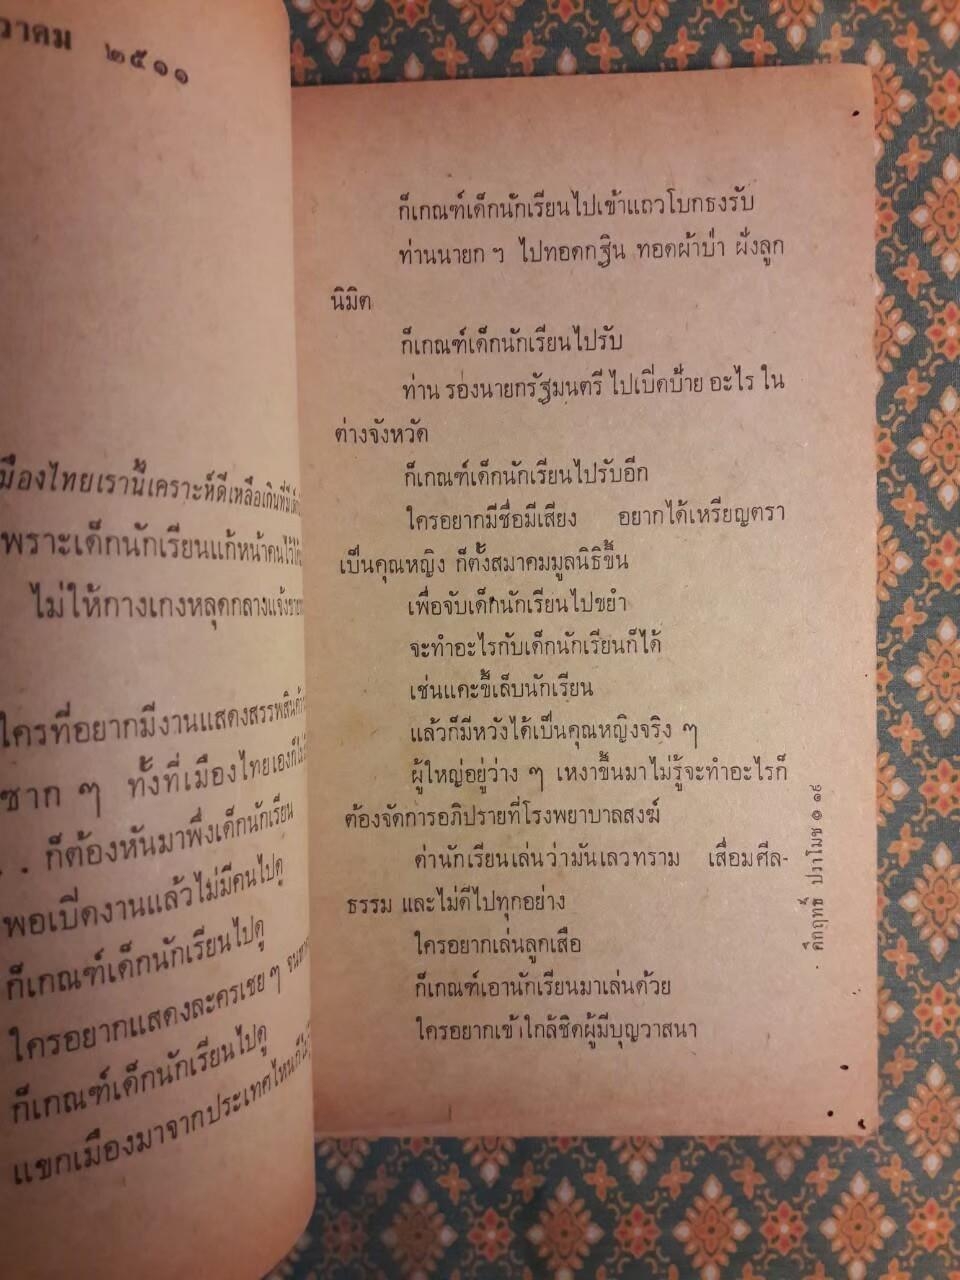 ๒๕๑๑
ไม่ให้กางเกงหลุดกลางแจ้ง
ใครที่อยากมีงานแสดงสรรพสินค้า
ซาก ๆ ทั้งที่เมืองไทยเองก็
. . ก็ต้องหันมาพึ่งเด็กนักเรียน
พอเปิดงานแล้วไม่มีคนไปดู
ก็เกณฑ์เด็กนักเรียนไปดู
ใครอยากแสดงละครเชย ๆ
ก็เกณฑ์เด็กนักเรียนไปดู
แขกเมืองมาจากประเทศไหนก็
ก็เกณฑ์เด็กนักเรียนไปเข้าแถวโบกธงรับ
ท่านนายก ฯ ไปทอดกฐิน ทอดผ้าป่า ฝังลูก
นิมิต
ก็เกณฑ์เด็กนักเรียนไปรับ
ท่าน รองนายกรัฐมนตรี ไปเปิดป้าย อะไร ใน
ต่างจังหวัด
ก็เกณฑ์เด็กนักเรียนไปรับอีก
ใครอยากมีชื่อมีเสียง อยากได้เหรียญตรา
เป็นคุณหญิง ก็ตั้งสมาคมมูลนิธิขึ้น
เพื่อจับเด็กนักเรียนไปขยำ
จะทำอะไรกับเด็กนักเรียนก็ได้
เช่นแคะขี้เล็บนักเรียน
แล้วก็มีหวังได้เป็นคุณหญิงจริง ๆ
ผู้ใหญ่อยู่ว่าง ๆ เหงาขึ้นมาไม่รู้จะทำอะไรก็
ต้องจัดการอภิปรายที่โรงพยาบาลสงฆ์
ด่านักเรียนเล่นว่ามันเลวทราม เสื่อมศีล-
ธรรม และไม่ดีไปทุกอย่าง
ใครอยากเล่นลูกเสือ
ก็เกณฑ์เอานักเรียนมาเล่นด้วย
ใครอยากเข้าใกล้ชิดผู้มีบุญวาสนา
คึกฤทธิ์ ปราโมช ๑๑๕